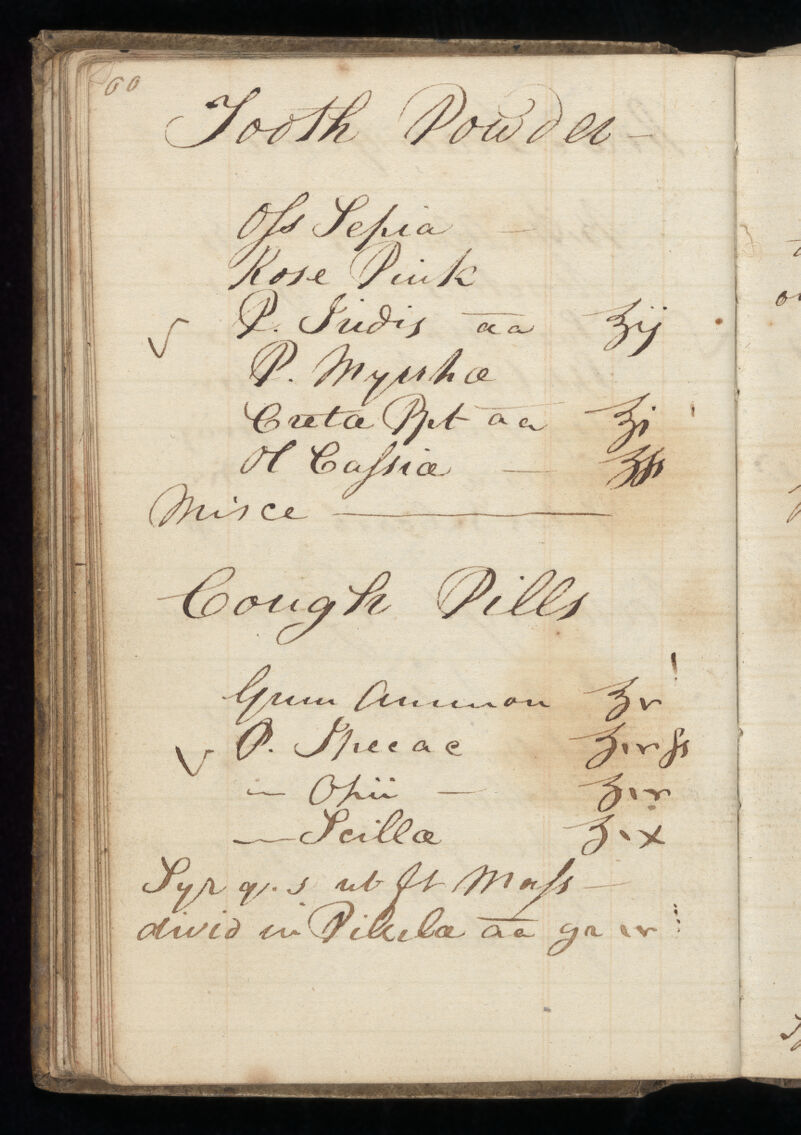 60
Tooth Powder —
Oſs Sepia —
Rose Pink
P. Iridis a̅a̅ ʒij
P. Myrrhæ
Creta Ppt a̅a̅ ʒj
Ol Caſsiæ — ʒſs
Misce —
Cough Pills
Gum Ammon ʒv
P. Ipecac ʒivſs
— Opii — ʒiv
— Scillæ ʒix
Syr q.s ut ft Maſs —
divid in Pilulæ a̅a̅ gr iv